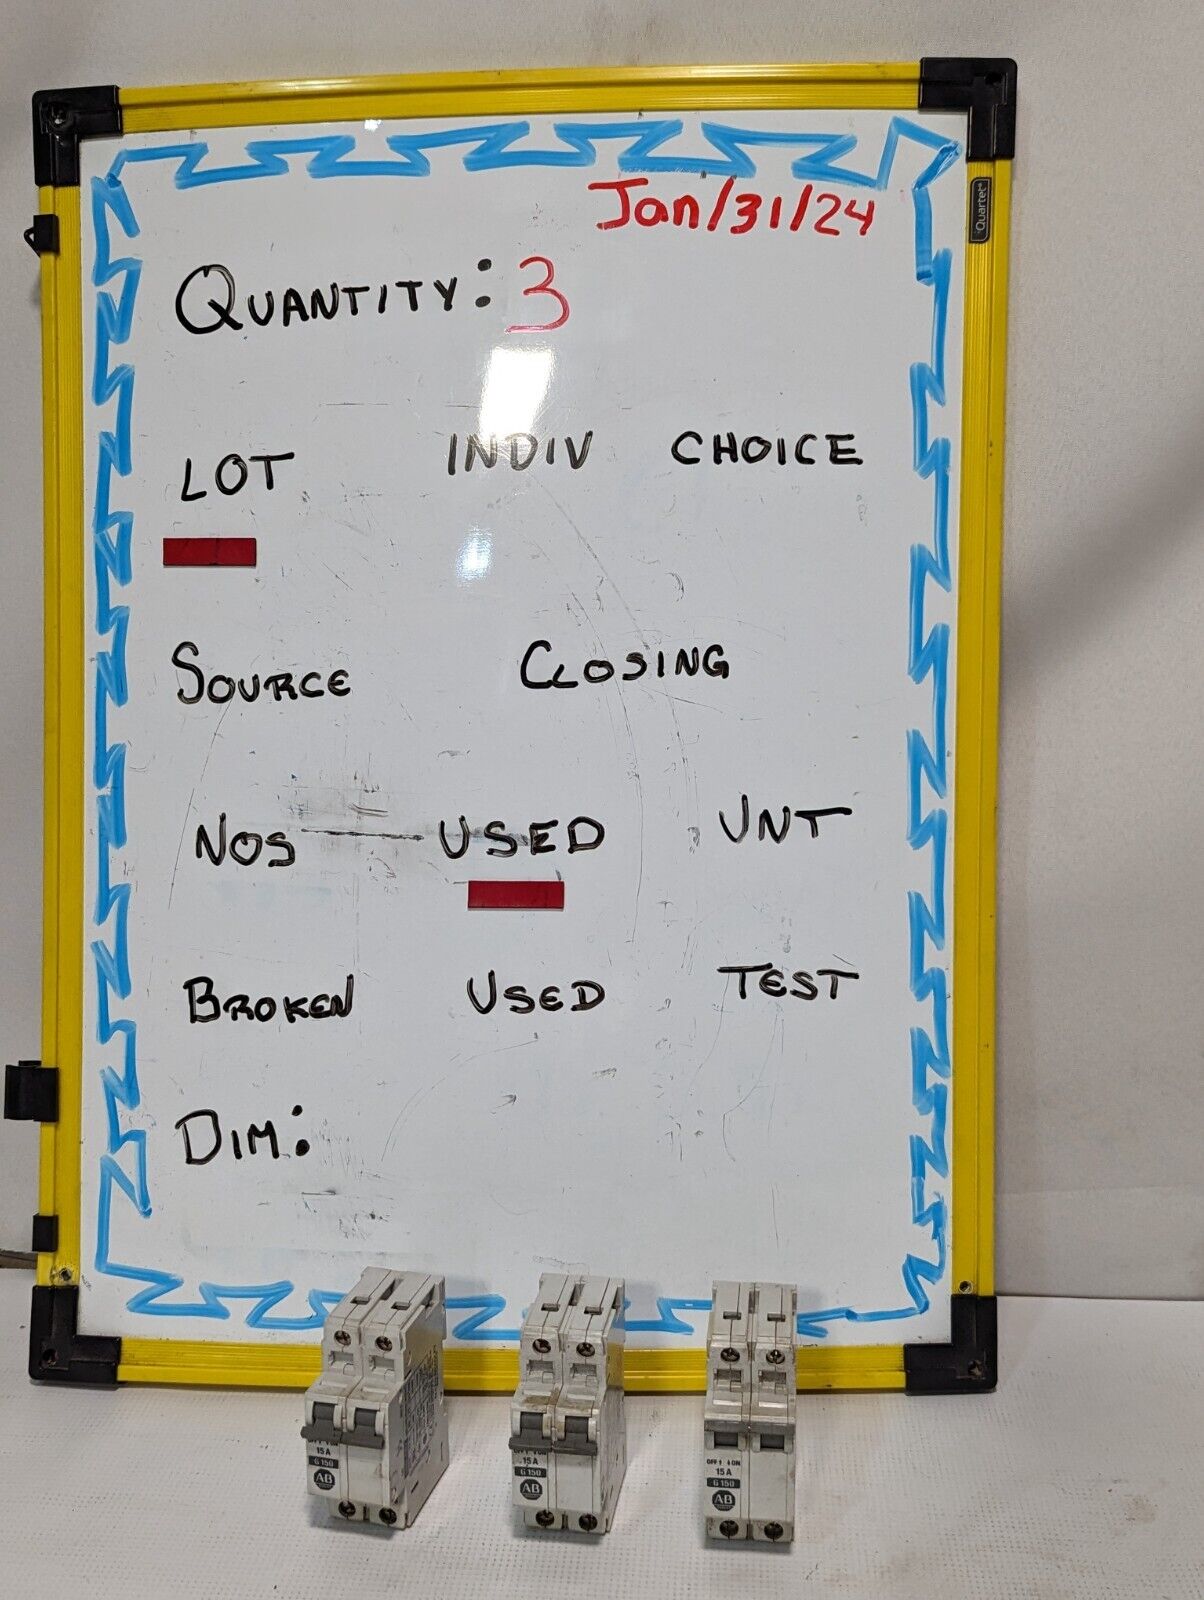 Jan/31/24
Quartet
QUANTITY: 3
LOT INDIV CHOICE
SOURCE CLOSING
NOS USED UNT
BROKEN USED TEST
DIM:
15 A
G 150
AB
15 A
G 150
AB
OFF ON
15 A
G 150
AB